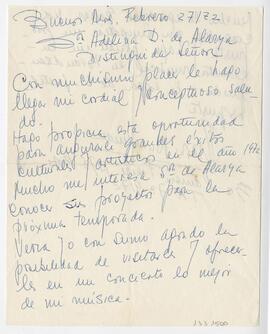 Buenos Aires, Febrero 27/72
Sª Adelina D. de Alasya
Distinguida Señora
Con muchísimo placer le hago
llegar mi cordial y conceptuoso salu
do.
Hago propicia esta oportunidad
para augurarle grandes éxitos
culturales y artísticos en el año 1972
Mucho me interesa Sª de Alasya
conocer sus proyectos para la
próxima temporada.
Vería yo con sumo agrado la
posibilidad de visitarles y ofrecer
les en un concierto lo mejor
de mi música.